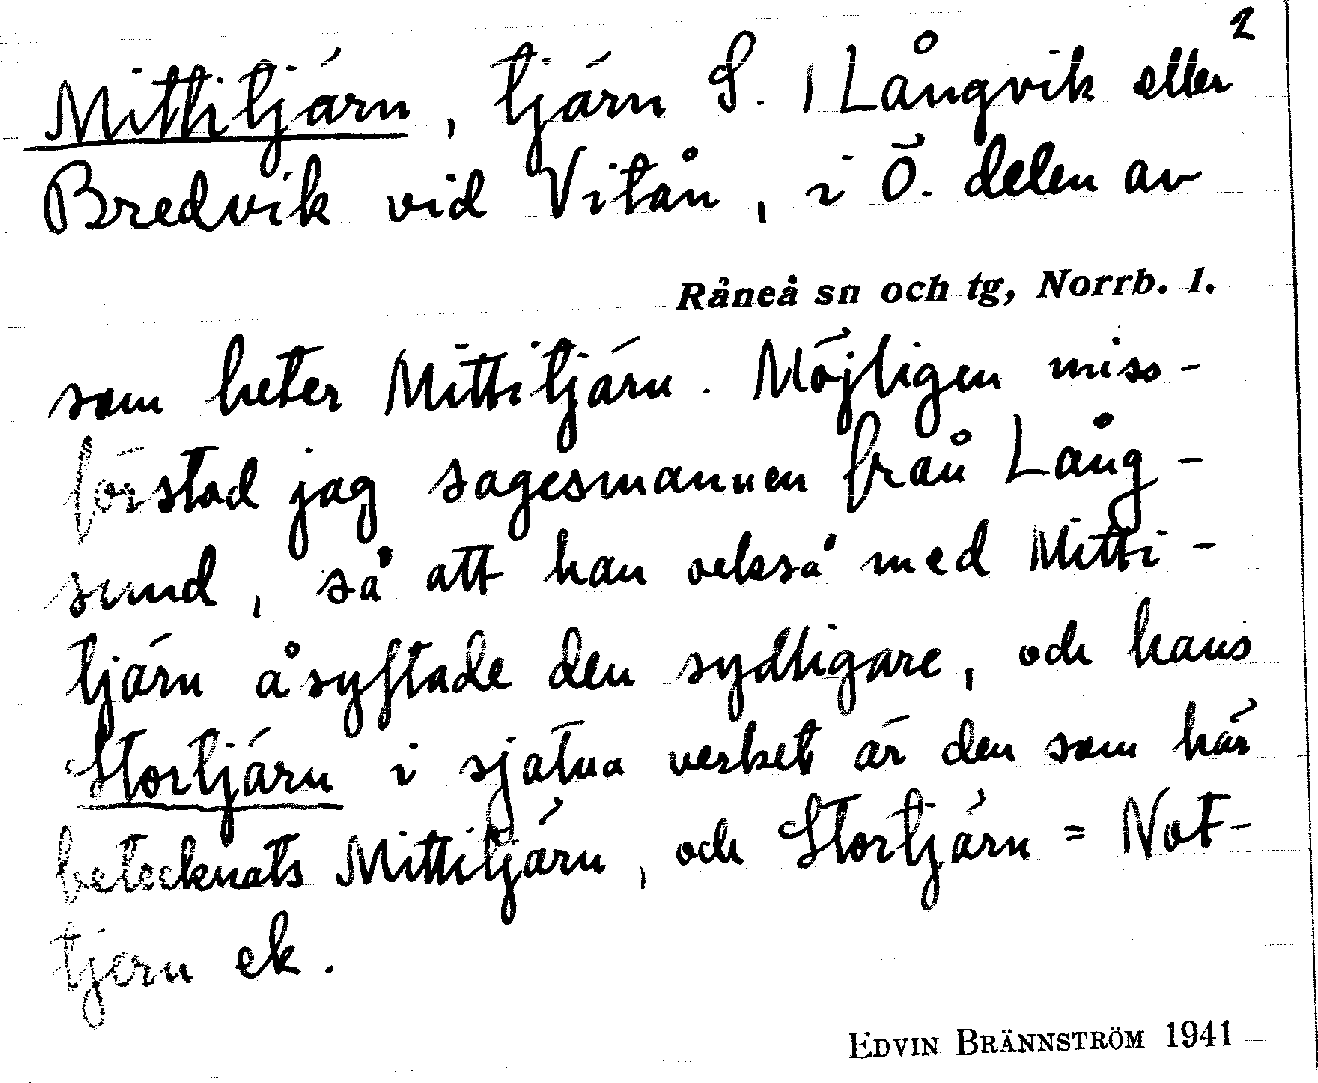 2
Mittitjärn, tjärn S. i Långvik eller
Bredvik vid Vitån, i Ö. delen av
Råneå sn och tg, Norrb. l.
som heter Mittitjärn. Möjligen miss-
förstod jag sagesmannen från Lång-
sund, så att han också med Mitti-
tjärn åsyftade den sydligare, och hans
Stortjärn i själva verket är den som här
betecknats Mittitjärn, och Stortjärn = Not-
tjern ek.
EDVIN BRÄNNSTRÖM 1941